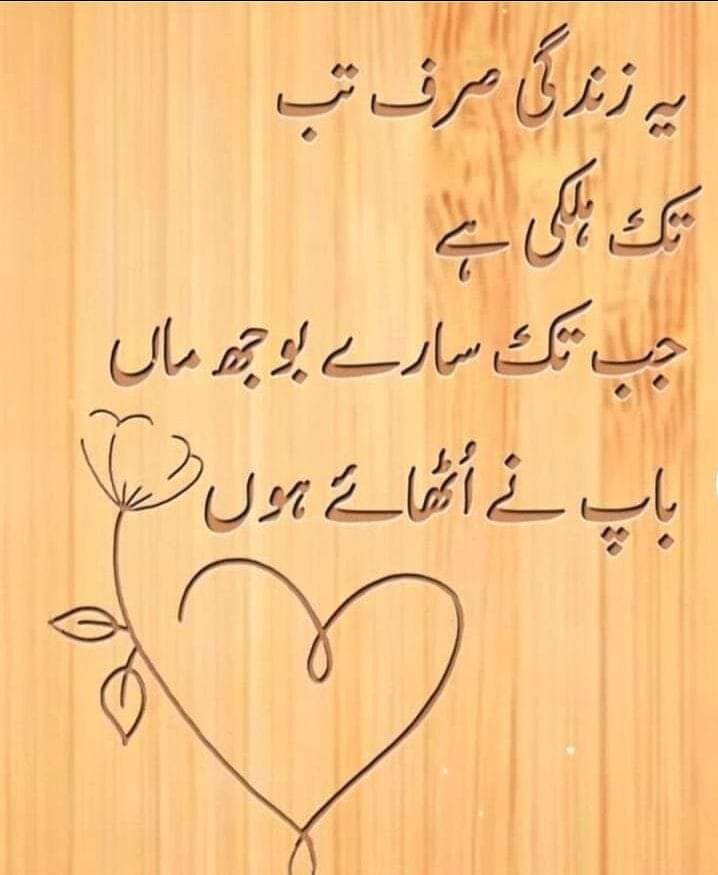 یہ زندگی صرف تب
تک ہلکی ہے
جب تک سارے بوجھ ماں
باپ نے اُٹھائے ہوں